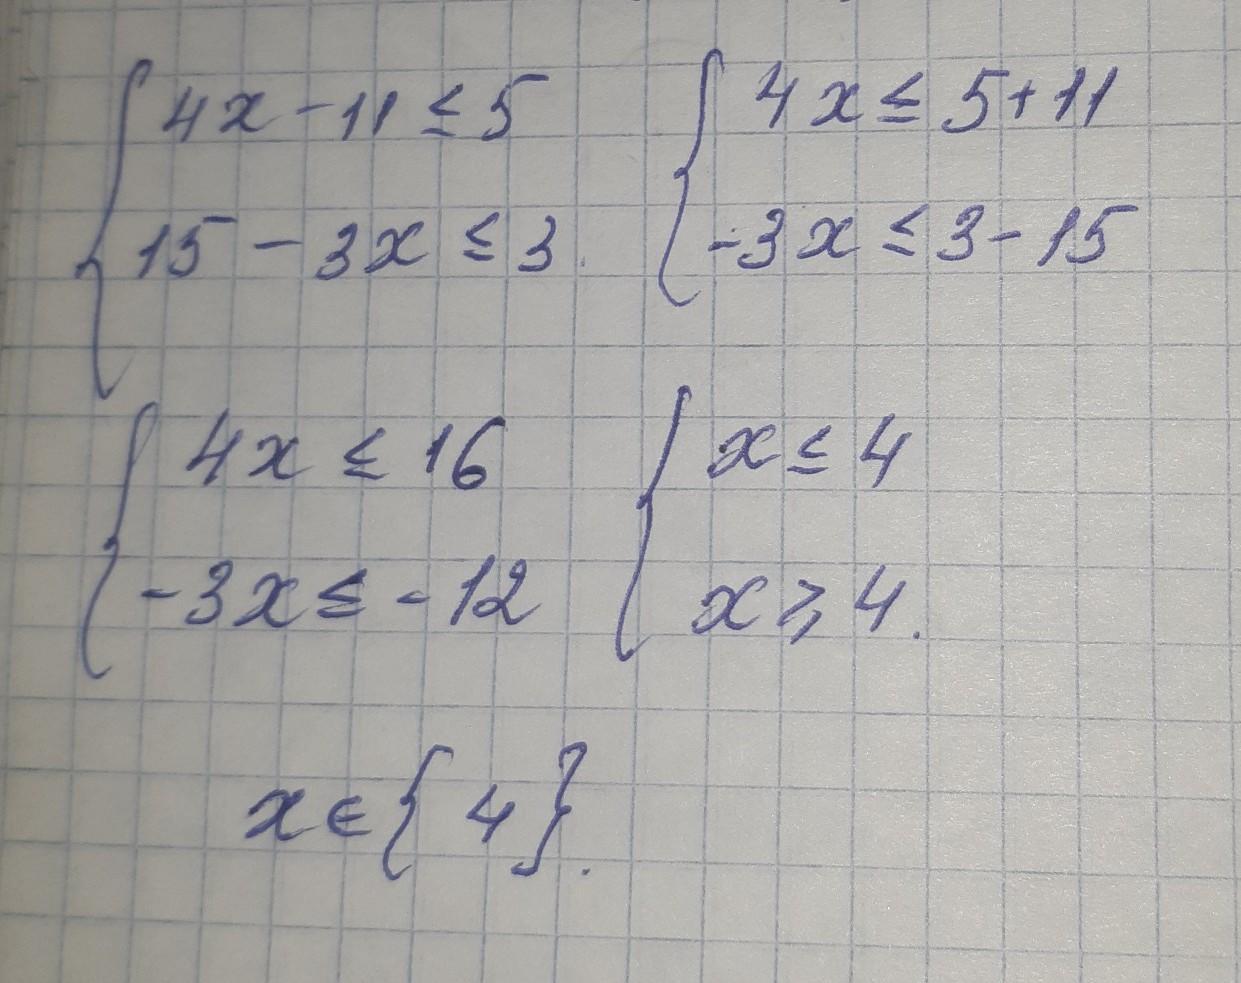 4x - 11 ≤ 5
15 - 3x ≤ 3.
4x ≤ 5 + 11
-3x ≤ 3 - 15
4x ≤ 16
-3x ≤ -12
x ≤ 4
x ⩾ 4.
x ∈ { 4 }.